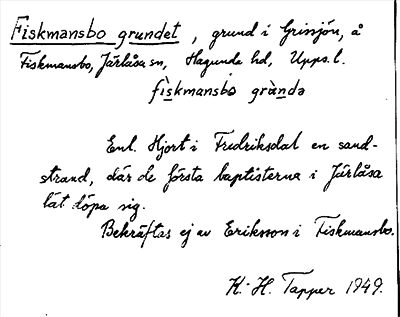 Fiskmansbo grundet, grund i Grissjön, å
Fiskmansbo, Järlåsa sn, Hagunda hd, Upps. l.
fìskmansbo grùndə
Enl. Hjort i Fredriksdal en sand-
strand, där de första baptisterna i Järlåsa
lät döpa sig.
Bekräftas ej av Eriksson i Fiskmansbo.
K.-H. Tapper 1949.